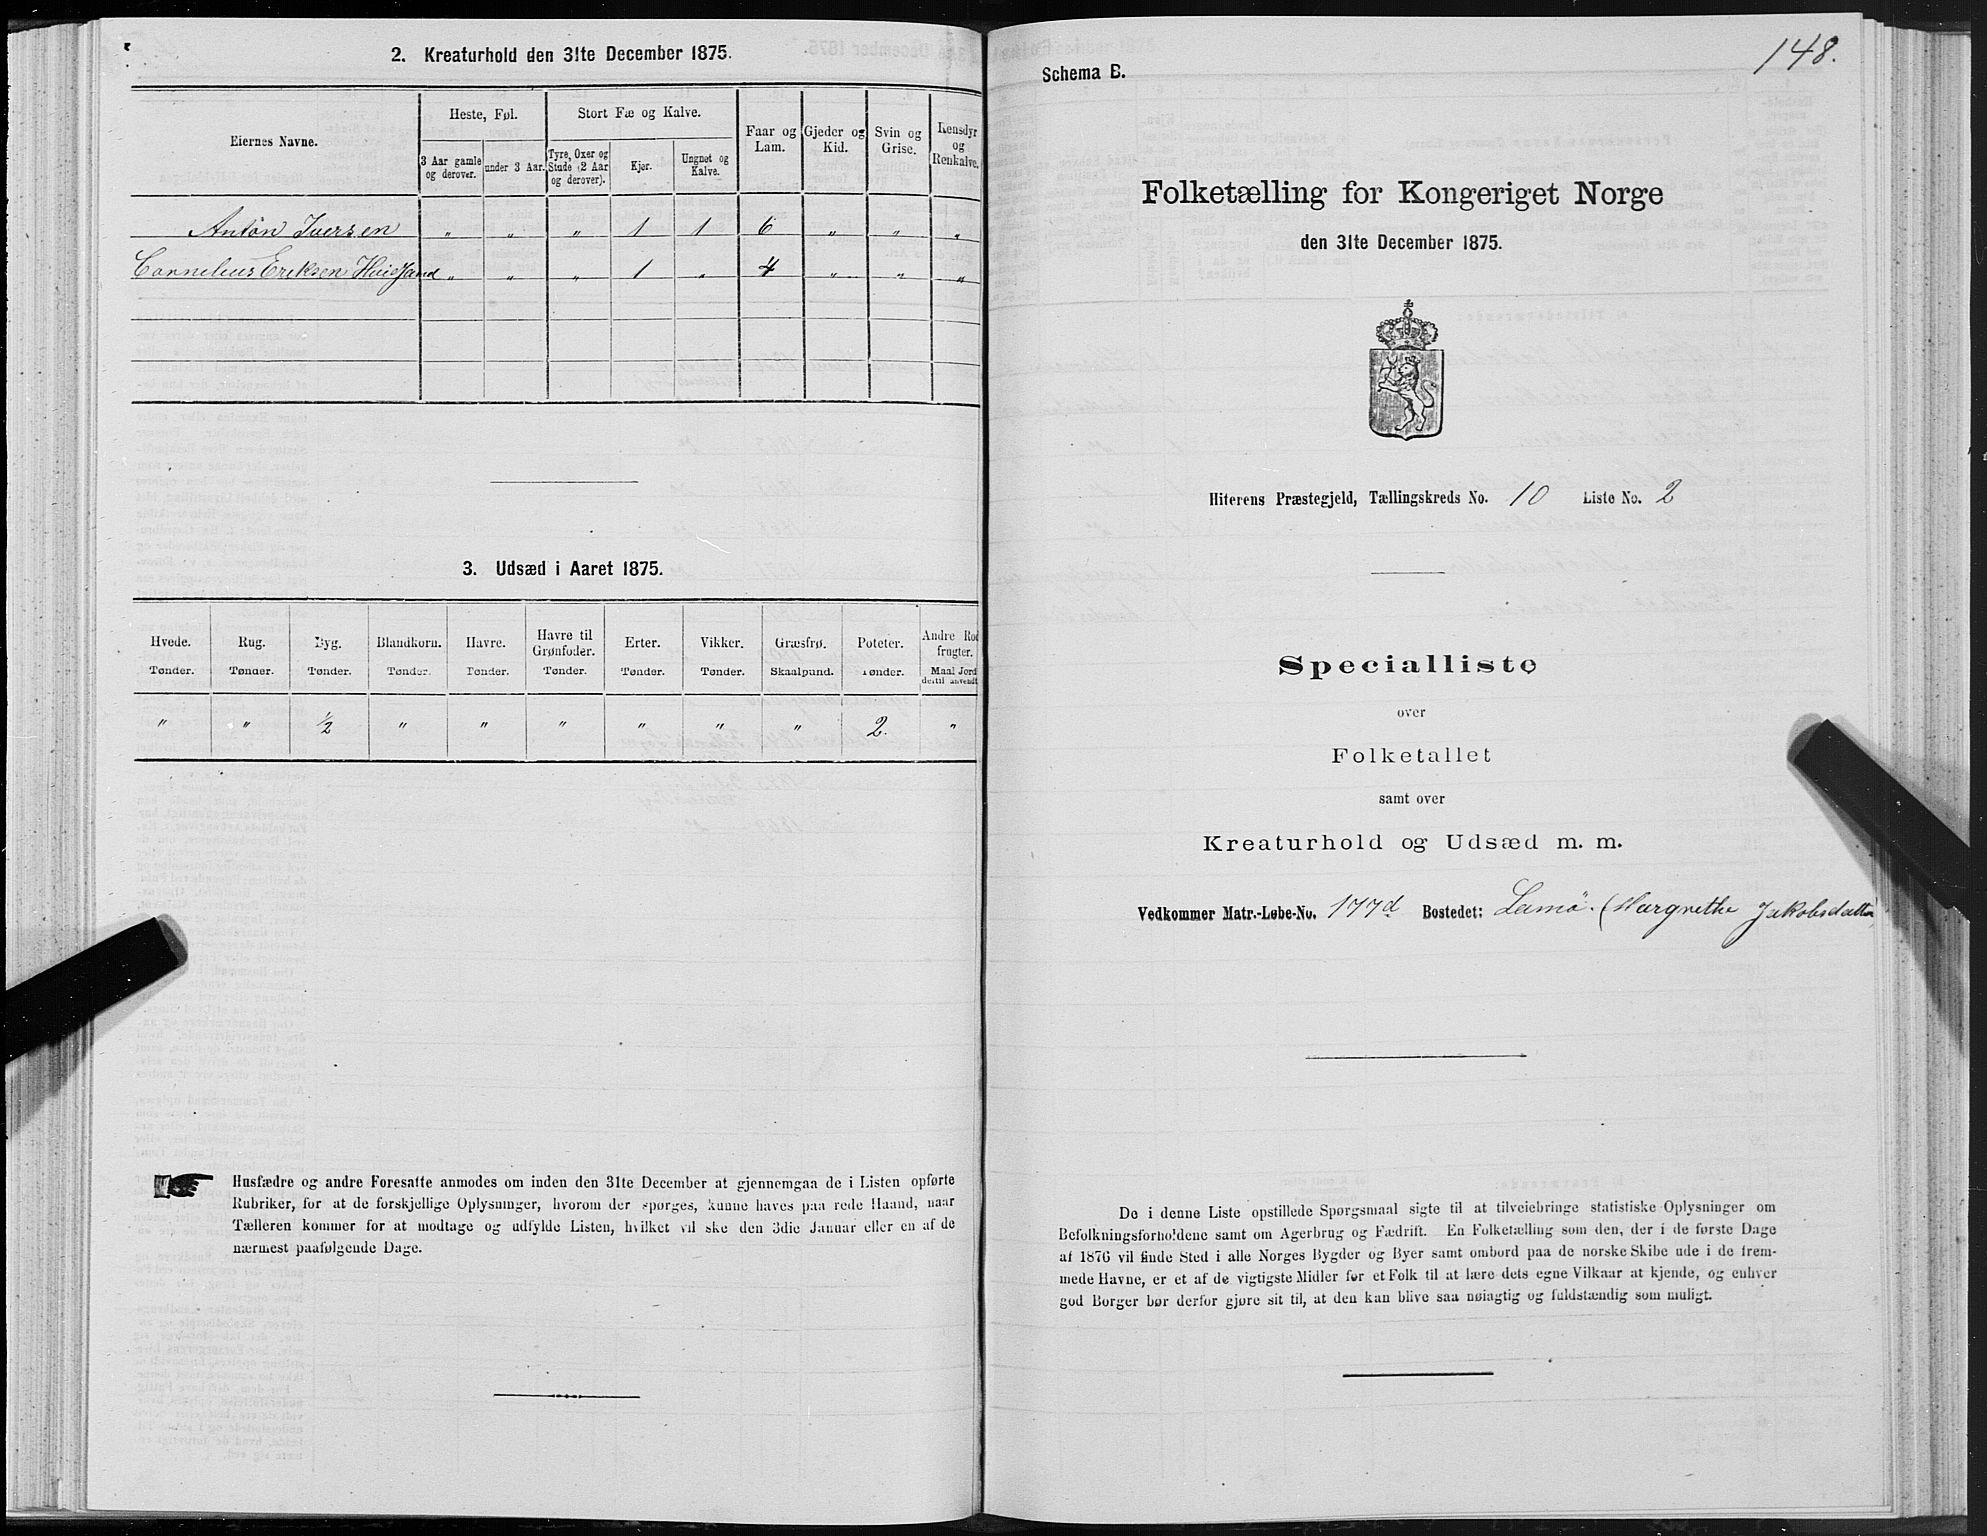 2. Kreaturhold den 31te December 1875.
Eiernes Navne. Heste, Føl. Stort Fæ og Kalve. Faar og Lam. Gjeder og Kid. Svin og Grise. Rensdyr og Renkalve.
3 Aar gamle og derover. under 3 Aar. Tyre, Oxer og Stude (2 Aar og derover). Kjør. Ungnøt og Kalve.
Anton Iversen " " " 1 1 6 " " "
Cornelius Eriksen " " " 1 " 4 " " "
3. Udsæd i Aaret 1875.
Hvede. Rug. Byg. Blandkorn. Havre. Havre til Grønfoder. Erter. Vikker. Græsfrø. Poteter. Andre Rodfrugter.
Tønder. Tønder. Tønder. Tønder. Tønder. Tønder. Tønder. Tønder. Skaalpund. Tønder. Maal Jord dertil anvendt
" " ½ " " " " " " 2. "
Husfædre og andre Foresatte anmodes om inden den 31te December at gjennemgaa de i Listen opførte
Rubriker, for at de forskjellige Oplysninger, hvorom der spørges, kunne haves paa rede Haand, naar
Tælleren kommer for at modtage og udfylde Listen, hvilket vil ske den 3die Januar eller en af de
nærmest paafølgende Dage.
148.
Schema B.
Folketælling for Kongeriget Norge
den 31te December 1875.
Hiterens Præstegjeld, Tællingskreds No. 10 Liste No. 2
Specialliste
over
Folketallet
samt over
Kreaturhold og Udsæd m. m.
Vedkommer Matr.-Løbe-No. 177d Bostedet: Lamø. (Margrethe Jakobsdatter)
De i denne Liste opstillede Spørgsmaal sigte til at tilveiebringe statistiske Oplysninger om
Befolkningsforholdene samt om Agerbrug og Fædrift. En Folketælling som den, der i de første Dage
af 1876 vil finde Sted i alle Norges Bygder og Byer samt ombord paa de norske Skibe ude i de frem-
mede Havne, er et af de vigtigste Midler for et Folk til at lære dets egne Vilkaar at kjende, og enhver
god Borger bør derfor gjøre sit til, at den kan blive saa nøiagtig og fuldstændig som muligt.